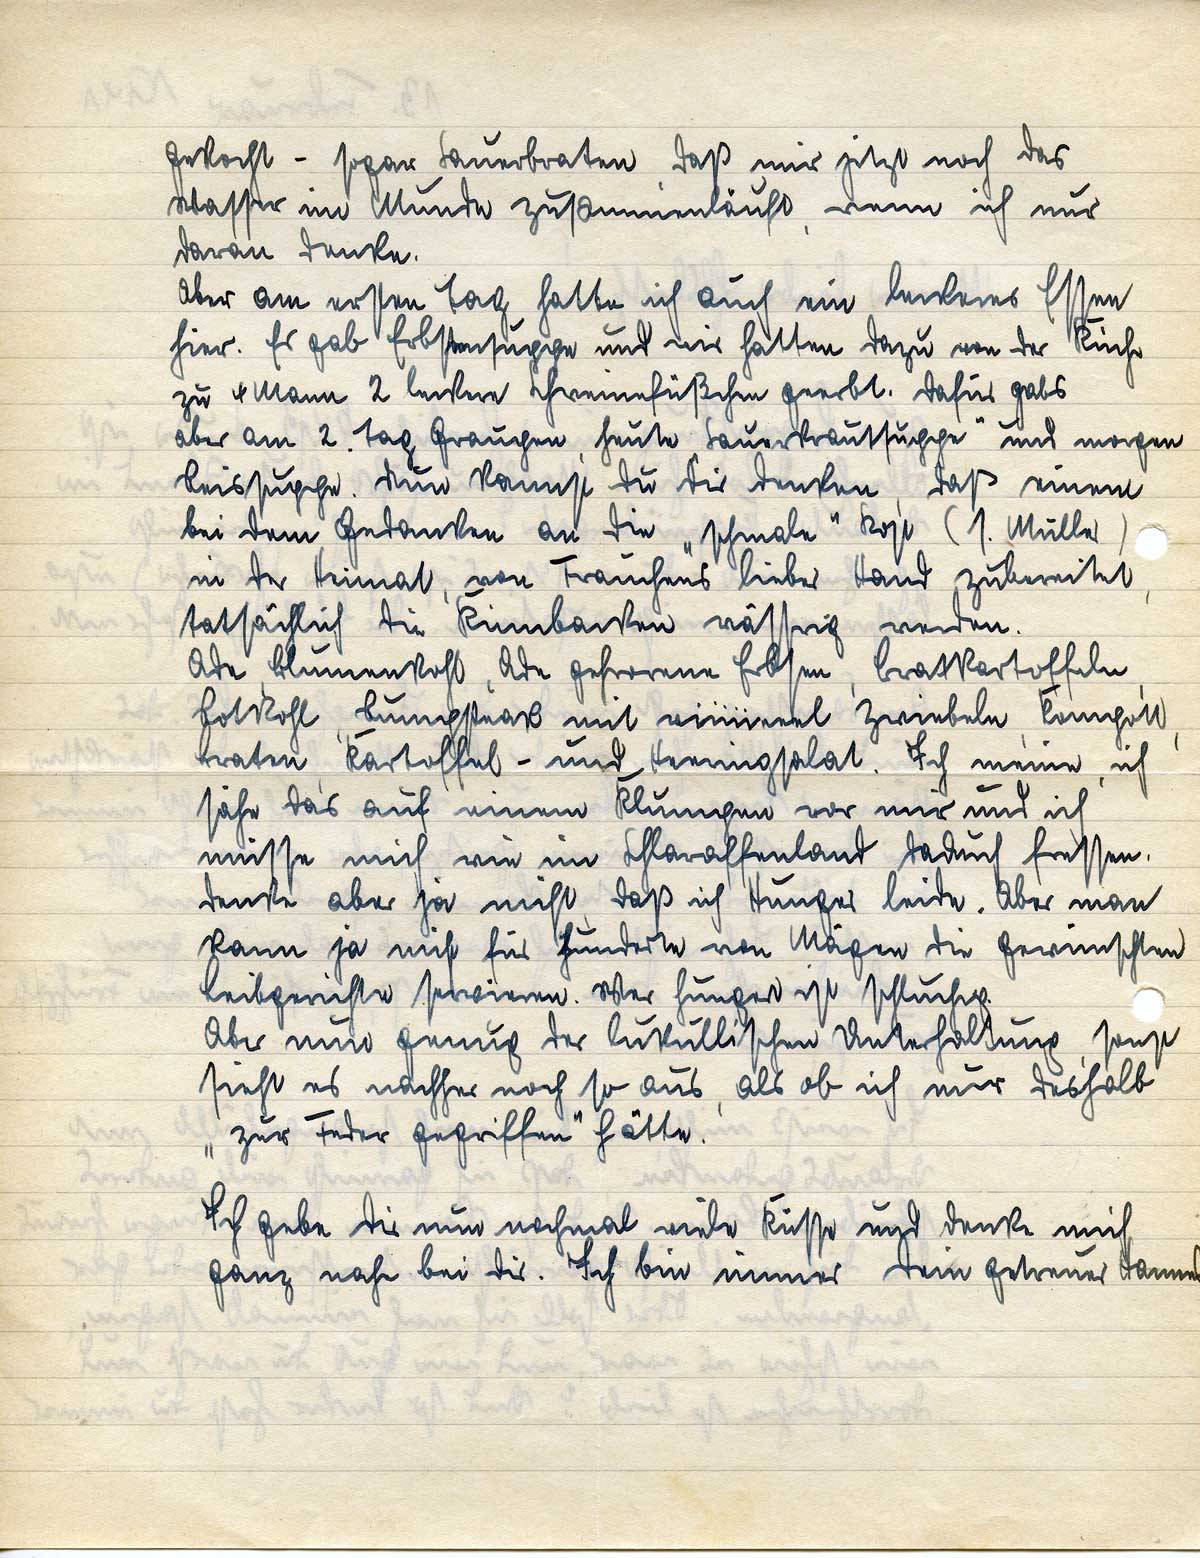 gekocht – sogar Sauerbraten, daß mir jetzt noch das
Wasser im Munde zusammenläuft, wenn ich nur
daran denke.
Aber am ersten Tag hatte ich auch ein leckeres Essen
hier. Es gab Erbsensuppe und wir hatten dazu von der Küche
zu 4 Mann 2 leckere Schweinefüßchen geerbt. Dafür gabs
aber am 2. Tag Graupen, heute Sauerkrautsuppe" und morgen
Reissuppe. Nun kannst du dir denken, daß einem
bei dem Gedanken an die „schmale" Kost (s. Müller)
in der Heimat, von Frauchens lieber Hand zubereitet,
tatsächlich die Kinnbacken wässrig werden.
Ade Blumenkohl, Ade gefrorene Erbsen, Bratkartoffeln,
Rotkohl, Rumpsteak mit viiiiieeel Zwiebeln, Kompott,
Braten, Kartoffel- und Heeringsalat. Ich meine, ich
sähe das auf einem Klumpen vor mir und ich
müsse mich wie im Schlaraffenland daduch fressen.
Denke aber ja nicht, daß ich Hunger leide. Aber man
kann ja nicht für Hunderte von Mägen die gewünschten
Leibgerichte servieren. Wer hunger ist schluchzg.
Aber nun genug der lukullischen Unterhaltung, sonst
sieht es nachher noch so aus, als ob ich nur deshalb
„zur Feder gegriffen" hätte.
Ich gebe dir nun nochmal viele Küsse und denke mich
ganz nahe bei dir. Ich bin immer Dein getreuer